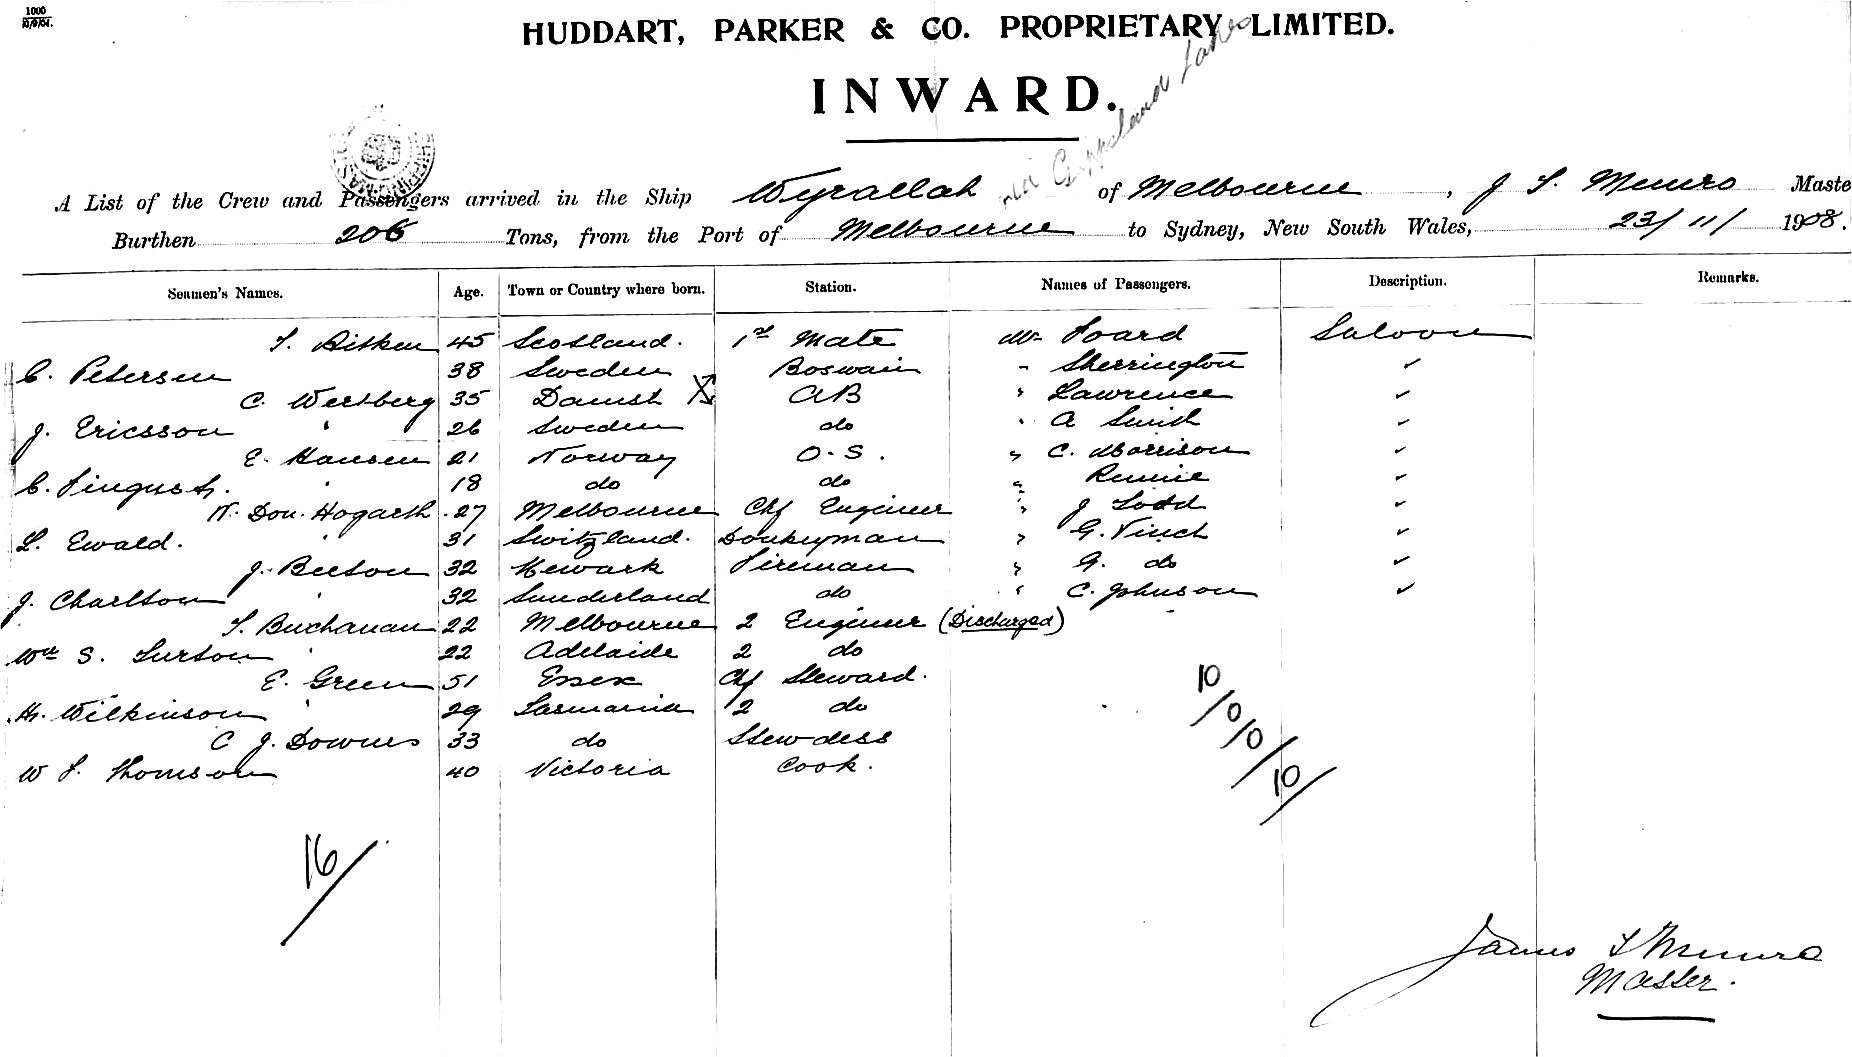 1000
10/9/04.
HUDDART, PARKER & CO. PROPRIETARY LIMITED.
INWARD.
via Gippsland Lakes
A List of the Crew and Passengers arrived in the Ship Wyrallah of Melbourne, J S. Munro Maste
Burthen 206 Tons, from the Port of Melbourne to Sydney, New South Wales, 23/11/1908.
Seamen's Names. Age. Town or Country where born. Station. Names of Passengers. Description. Remarks.
45 Scotland. 1st Mate Mr Saloon
C. Petersen 38 Sweden Boswain " Sherrington ✓
C. Westberg 35 Danish X AB " Lawrence ✓
J. Ericsson 26 Sweden do " A Smith ✓
E. Hansen 21 Norway O.S. " C. Morrison ✓
C. 18 do do " Rennie ✓
N. Don. Hogarth 27 Melbourne Chf Engineer " J Todd ✓
L. Ewald. 31 Switzland. Donkeyman " G. Finch ✓
J. Beeton 32 Newark Fireman " G. do ✓
J. Charlton 32 Sunderland do " C. Johnson ✓
Buchanan 22 Melbourne 2 Engineer (Discharged)
Wm S. 22 Adelaide 2 do
E. Green 51 Essex Chf Steward.
H. Wilkinson 29 Tasmania 2 do
C J. Downes 33 do Stewdess
W Thomson 40 Victoria Cook.
10/0/0/10/
16/
James S Munro
Master.